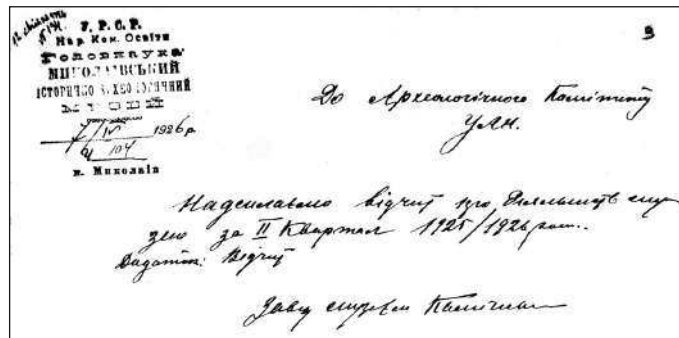 У. Р. С. Р.
Нар. Ком. Освіти
Головнаука
МИКОЛАЇВСЬКИЙ
ІСТОРИЧНО-АРХЕОЛОГІЧНИЙ
МУЗЕЙ
7/IV 1926 р.
104
м. Миколаїв
До Археологічного Комітету
УАН.
Надсилаємо відчит про діяльність му
зею за II Квартал 1925/1926 рок.
Додаток: Відчит
Завід музеєм